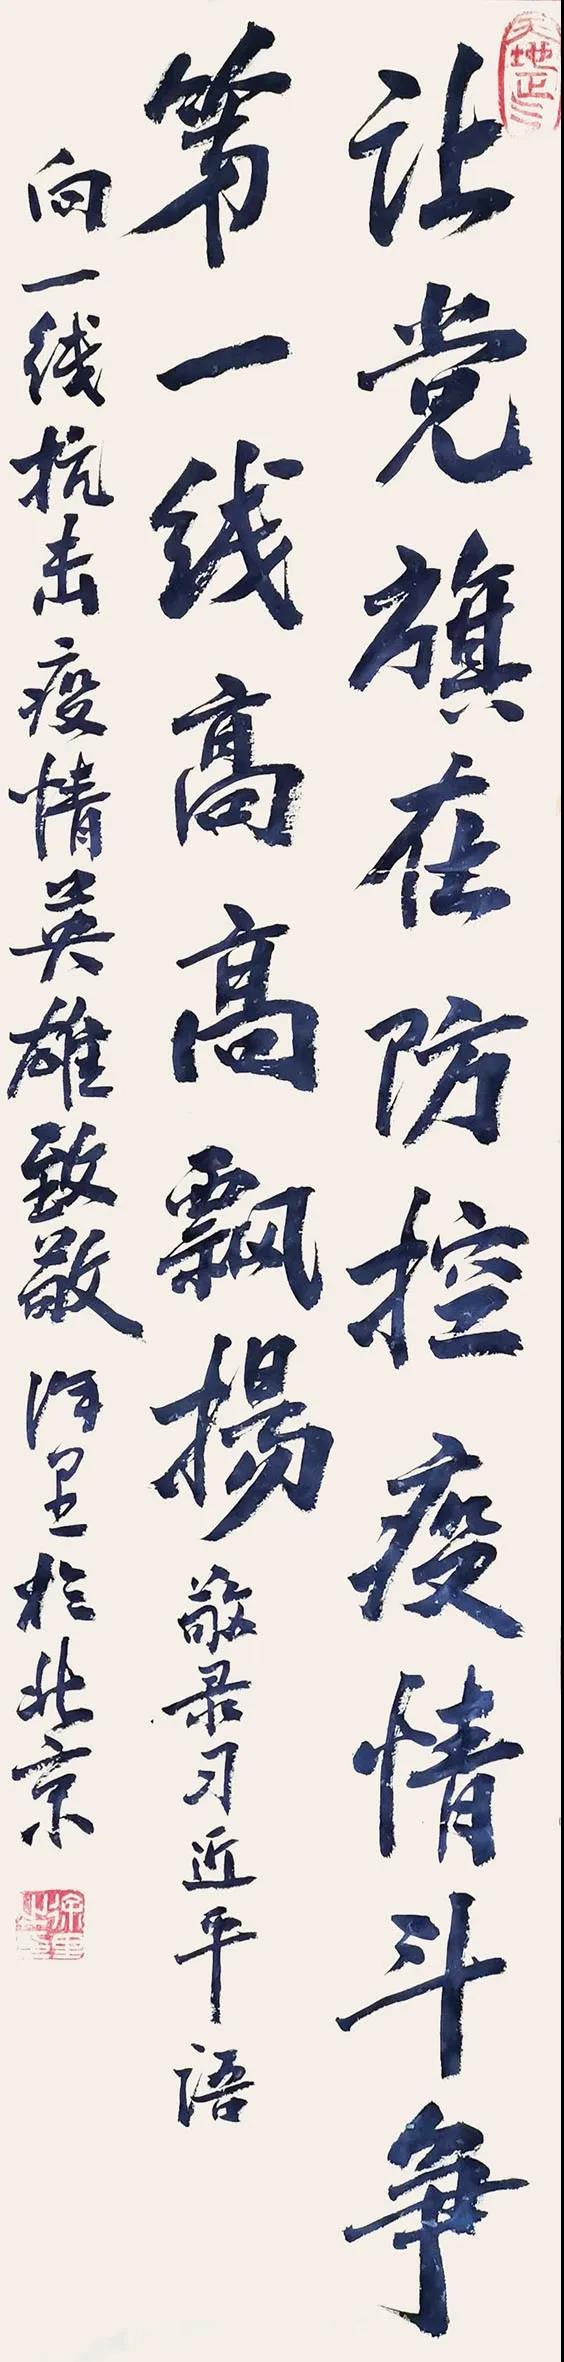 让党旗在防控疫情斗争
第一线高高飘扬 敬录习近平语
向一线抗击疫情英雄致敬 徐里於北京